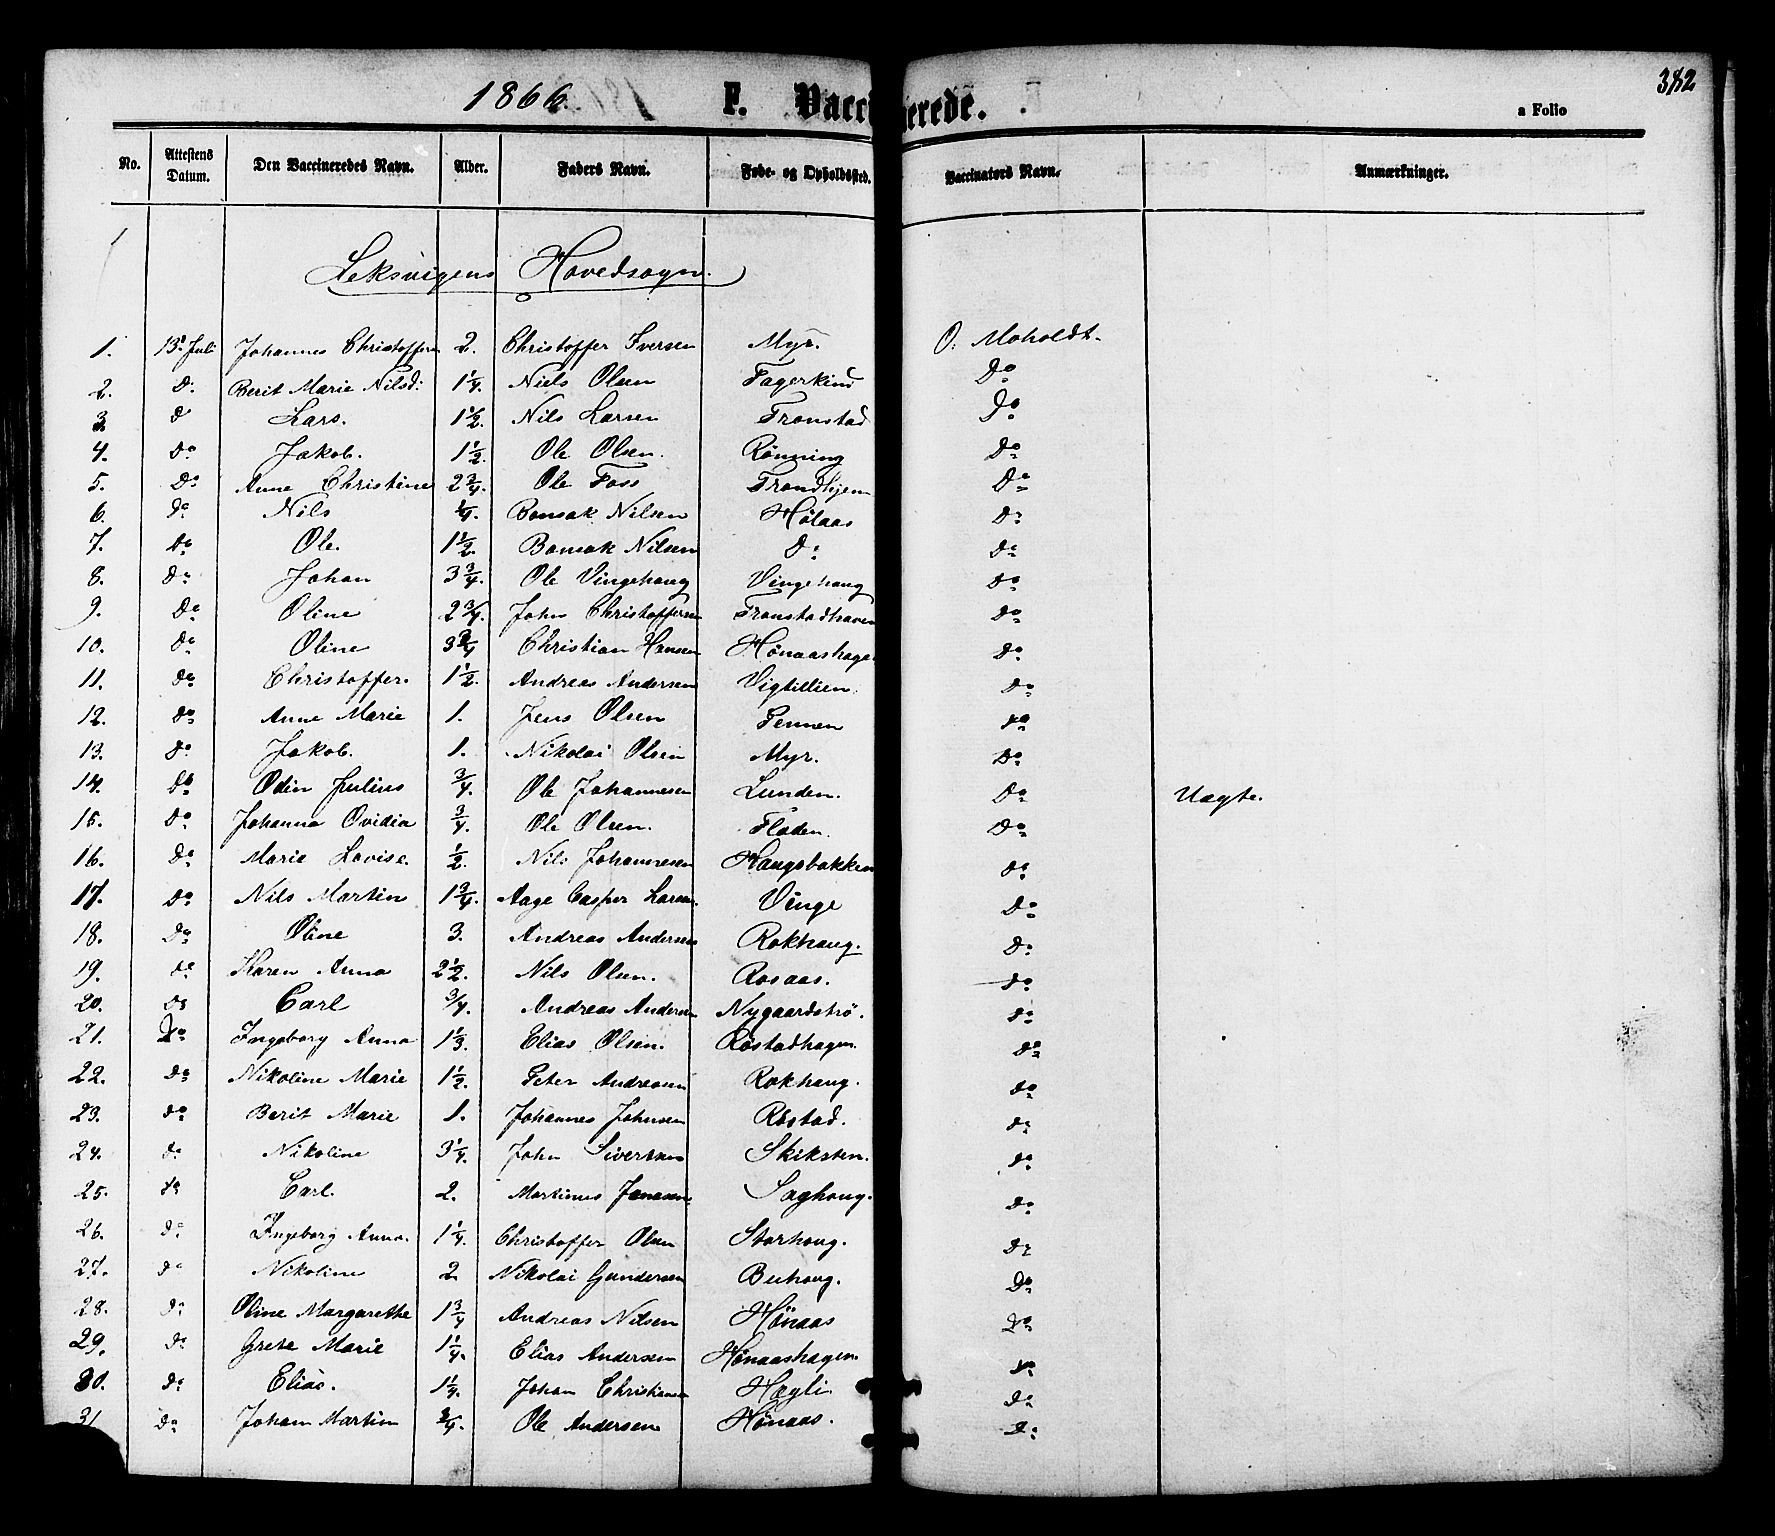 1866. F. Vaccinerede. 382
a Folio
No. Attestens Datum. Den Vaccineredes Navn. Alder. Faders Navn. Føde- og Opholdssted. Vaccinators Navn. Anmærkninger.
Leksvigens Hovedsogn.
1. 13. Juli Johannes Christoffer 2. Christoffer Iversen Myr. O. Moholdt.
2. Do Berit Marie Nilsd: 1 1/4. Niels Olsen Fagerkind Do
3. Do Lars. 1 1/2. Nils Larsen Tronstad Do
4. Do Jakob. 1 1/2. Ole Olsen. Rønning Do
5. Do Anne Christine 2 3/4. Ole Foss Trondhjem Do
6. Do Nils 1/4. Bonsak Nilsen Hølaas Do
7. Do Ole. 1 1/2. Bonsak Nilsen Do Do
8. Do Johan 3 3/4. Ole Vingehaug Vingehaug Do
9. Do Oline 2 3/4. John Christoffersen Tronstadhaven Do
10. Do Oline 3 3/4 Christian Hansen Hønaashagen Do
11. Do Christoffer. 1 1/2. Andreas Andersen Vigtillien. Do
12. Do Anne Marie 1. Jens Olsen Do
13. Do Jakob. 1. Nikolai Olsen Myr. Do
14. Do Odin Julius 3/4. Ole Johannesen Lunden. Do Uægte.
15. Do Johanna Ovidia 3/4. Ole Olsen. Fladen. Do
16. Do Marie Lovise. 1/2. Nils Johannesen Haugsbakken Do
17. Do Nils Martin 1 3/4. Aage Casper Larsen. Vinge Do
18. Do Oline 3. Andreas Andersen Rokhaug. Do
19. Do Karen Anna 2 1/2. Nils Olsen. Rosaas. Do
20. Do Carl 3/4. Andreas Andersen Nygaardstrø. Do
21. Do Ingeborg Anna 1 1/3. Elias Olsen. Røstadhagen. Do
22. Do Nikoline Marie 1 1/2. Peter Andreasen Rokhaug. Do
23. Do Berit Marie 1. Johannes Johnsen Røstad. Do
24. Do Nikoline 3 1/4. John Sivertsen Skiksten. Do
25. Do Carl. 2. Martinus Jensen. Saghaug. Do
26. Do Ingeborg Anna. 1 1/4. Christoffer Olsen Storhaug. Do
27. Do Nikoline 2 Nikolai Gundersen Buhaug. Do
28. Do Oline Margarethe 1 3/4 Andreas Nilsen Hønaas Do
29. Do Grete Marie 1 1/4. Elias Andersen Hønaashagen Do
30. Do Elias. 1 1/4. Johan Christiansen Hægli. Do
31 Do Johan Martin 3/4. Ole Andersen Hønaas. Do